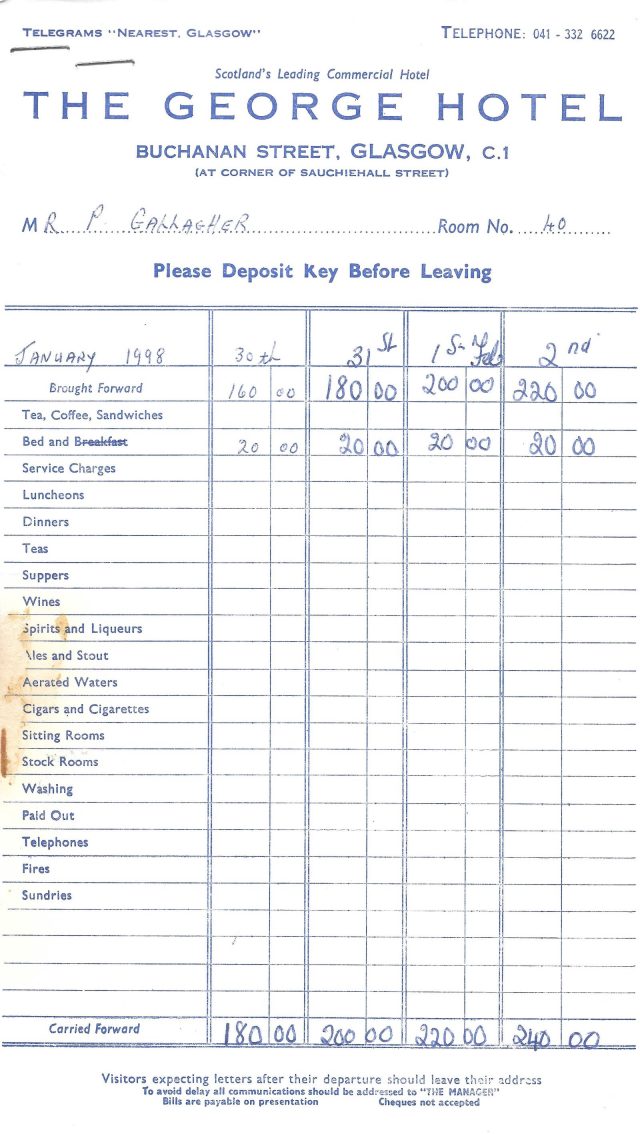 TELEGRAMS "NEAREST, GLASGOW" TELEPHONE: 041 - 332 6622
Scotland's Leading Commercial Hotel
THE GEORGE HOTEL
BUCHANAN STREET, GLASGOW, C.1
(AT CORNER OF SAUCHIEHALL STREET)
MR P. GALLAGHER Room No. 40
Please Deposit Key Before Leaving
JANUARY 1998 30th 31st 1st Feb 2nd
Brought Forward 160 00 180 00 200 00 220 00
Tea, Coffee, Sandwiches
Bed and Breakfast 20 00 20 00 20 00 20 00
Service Charges
Luncheons
Dinners
Teas
Suppers
Wines
Spirits and Liqueurs
Ales and Stout
Aerated Waters
Cigars and Cigarettes
Sitting Rooms
Stock Rooms
Washing
Paid Out
Telephones
Fires
Sundries
Carried Forward 180 00 200 00 220 00 240 00
Visitors expecting letters after their departure should leave their address
To avoid delay all communications should be addressed to "THE MANAGER"
Bills are payable on presentation Cheques not accepted